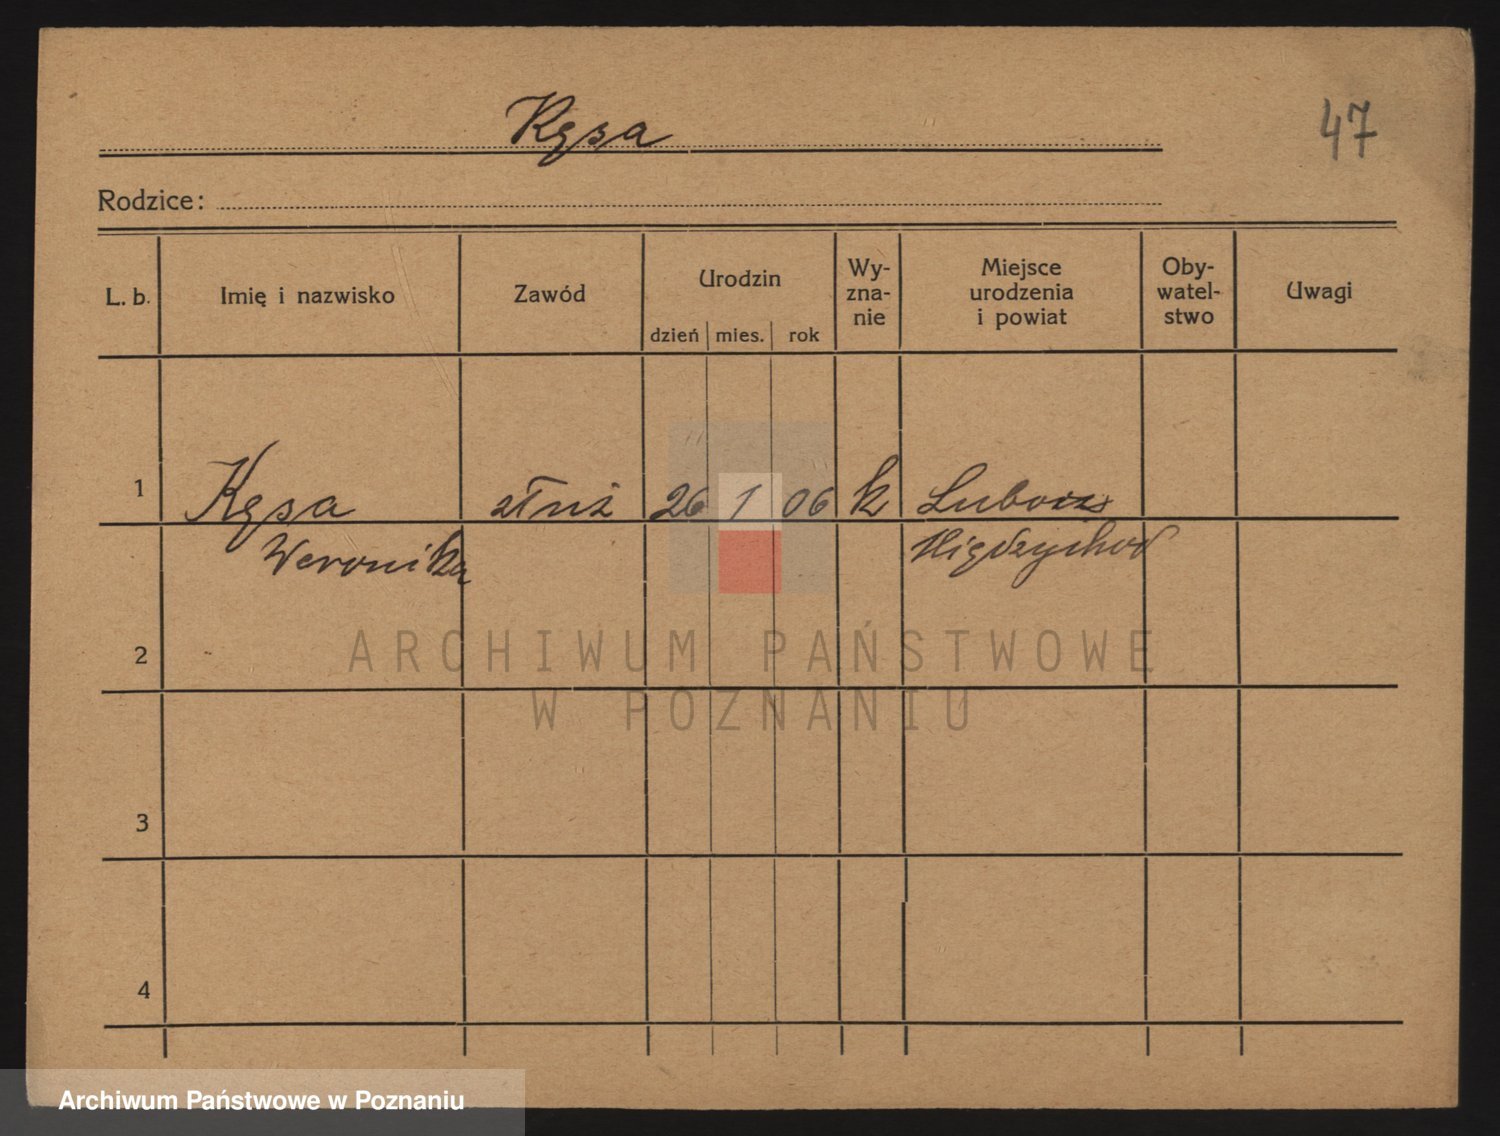 Kęsa
47
Rodzice:
L. b. Imię i nazwisko Zawód Urodzin dzień mies. rok Wy-zna-nie Miejsce urodzenia i powiat Oby-watel-stwo Uwagi
1 Kęsa służ 26 1 06 k Lubosz
Weronika Międzychod
2
ARCHIWUM PAŃSTWOWE
W POZNANIU
3
4
Archiwum Państwowe w Poznaniu